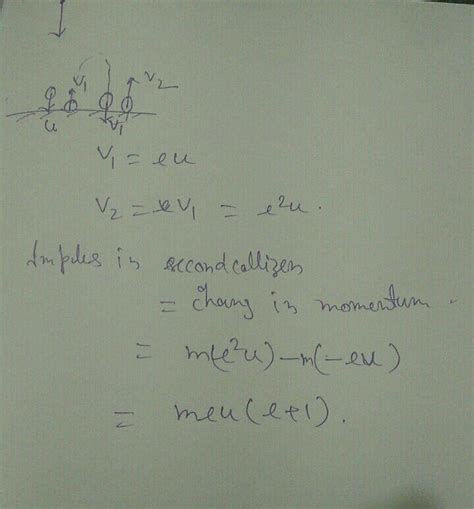 V₁ V₂
u V₁
V₁ = eu
V₂ = eV₁ = e²u.
Impules in secondcollizen
= Chang in momentum.
= m(e²u) - m(-eu)
= meu(e+1).